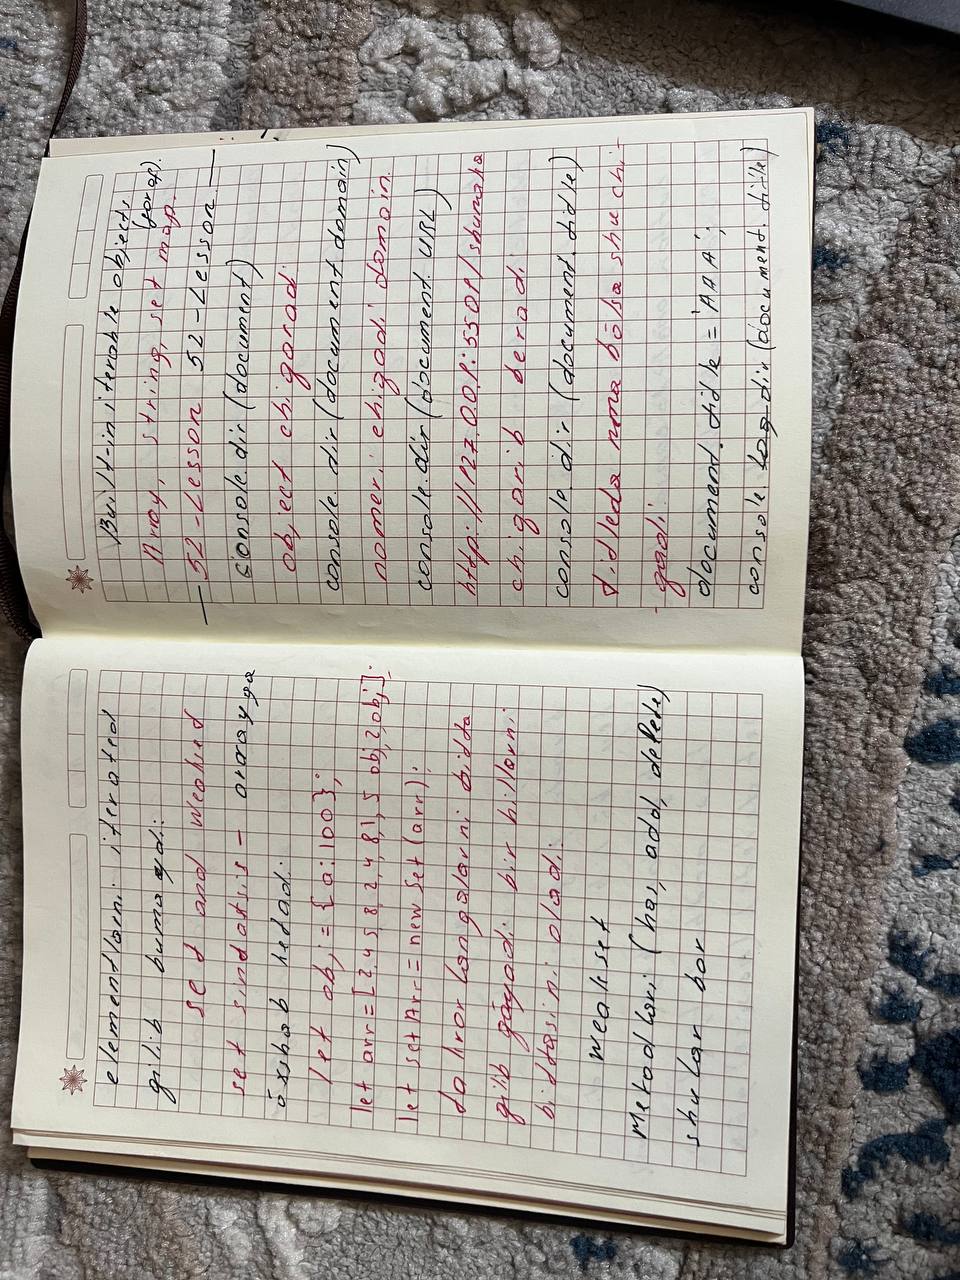 elementlarni iterated
qilib bumaydi:
set and weakset
set sindatsis - orrayga
õxshab ketadi:
let obj = {a:100};
let arr = [2,4,5,8,2,4,8,1,5 obj, 2, obj];
let setArr = new Set(arr);
dahror langalarni bidta
qilib qõyadi: bir hillarni
bidtasini oladi:
weakset
Metodlari (has, add, delete)
shular bor
Built-in iterable objects
Array, string, set map. (for of).
52-Lesson 52-Lesson
console.dir (document)
object chiqaradi
console.dir (document.domain)
nomeri chiqadi domain.
console.dir (document.URL)
http://127.0.0.1:5501/shunaqa
chiqarib beradi
console.dir (document.title)
titleda nma bõlsa shu chi-
qadi
document.title = 'AAA';
console log dir (document.title)